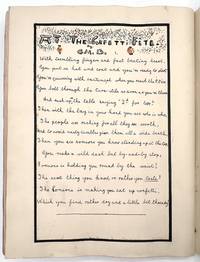 THE CAFETTI FÊTE.
By
G.M.B.
With trembling fingers and fast beating heart,
You put on hat and coat and you're ready to start
You're quivering with excitement when you reach the
You bolt through the two stile as soon as you're
And rush to the table saying "2d for too"
Then with the bag in your hand you see who's who
The people are making for all they are
And to avoid nasty scuffles give them all a wide berth.
Then you see someone you know standing up at the
You make a wild dash but by-and-by stop,
Someone is holding you round by the waist!
The next thing you know is rather you taste!
The Someone is making you eat up confetti,
Which you find rather dry and a little bit